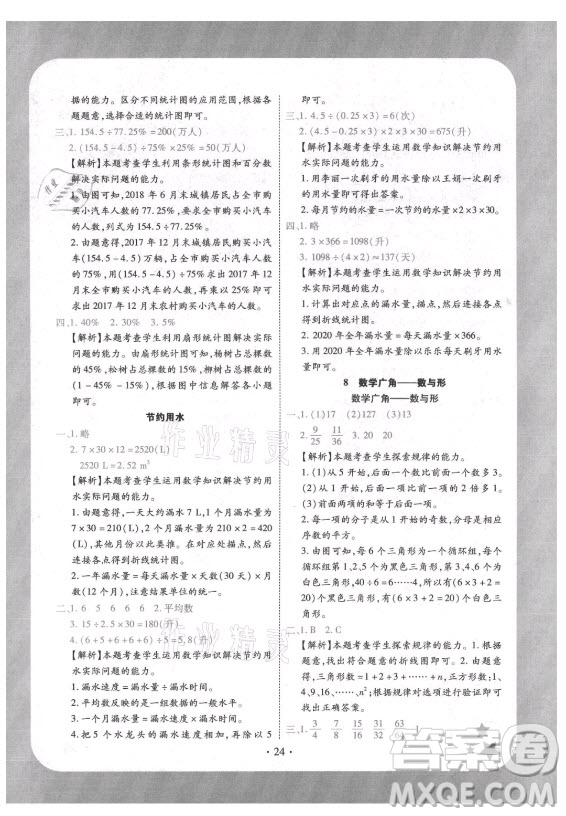 据的能力。区分不同统计图的应用范围,根据
题意,选择合适的统计图即可。
三、1. 154.5÷77.25%=200(万人)
2. (154.5-4.5)÷75%×25%=50(万人)
【解析】本题考查学生利用条形统计图和百分数
解决实际问题的能力。
1. 由图可知,2018 年 6 月末城镇居民占全市购
买小汽车人数的 77.25%,用城镇购买小汽车
的人数÷77.25%=2018 年 6 月末全市购买小汽车
的人数,列式为 154.5÷77.25%。
2. 由题意得,2017 年 12 月末城镇居民人数为
(154.5-4.5)万人,占全市购买小汽车人数
的 75%,用除法计算出 2017 年 12 月末全市购
买小汽车的人数,再乘以 25%
即可求出 2017 年 12 月末农村购买小汽车的人数。
四、1. 40% 2. 30% 3. 5%
【解析】本题考查学生利用扇形统计图解决实际
问题的能力。由扇形图可知,杨树占总棵数的
45%,松树占总棵数的 15%,柏树占总棵数的
(1-45%-15%)。根据图中信息解答各题即可。
节约用水
一、1. 略
2. 7×30×12=2520(L)
2520 L=2.52 m³
【解析】本题考查学生运用数学知识解决节约用
水实际问题的能力。
1. 由题意得,一天大约漏水 7 L,1 个月漏水量为
7×30=210(L),2 个月漏水量为 210×2=420
(L),其他月份以此类推。在对应处描点,连接
各点得出折线统计图。
2. 一年漏水量=一天漏水量×天数(30)×月数
(12),注意结果单位的统一。
二、1. 6 5 6 6 6 2. 平均数
3. 15÷2.5×30=180(升)
4. (6+5+6+6+6)÷5=5.8(升)
【解析】本题考查学生运用数学知识解决节约用
水实际问题的能力。
1. 漏水速度=漏水量÷漏水时间。
2. 平均数反映的是一组数据的一般水平。
3. 一个月漏水量=漏水速度×天数。
4. 把 5 个水龙头的漏水速度相加,再除以 5
即可。
三、1. 4.5÷(0.25×3)=6(次)
2. (4.5-0.25×3)×2×3×30=675(升)
【解析】本题考查学生运用数学知识解决节约用
水实际问题的能力。
1. 用第一次刷牙的用水量除以王娟一次的用水
量即可得出答案。
2. 每月节约的水量=一次节约的水量×次数×
天数。
四、1. 略
2. 3×366=1098(升)
3. 1098÷(4×2)≈137(天)
【解析】本题考查学生运用数学知识解决节约用
水实际问题的能力。
1. 计算出对应的漏水量,描点,然后依次连接各
点,得出折线统计图。
2. 2020 年全年漏水量=每天漏水量×天数
(366)。
3. 用 2020 年全年漏水量除以乐乐每天用水量
即可。
8 数学广角——数与形
数学广角——数与形
一、1. (1)17 (2)127 (3)13
2. 9/25 11/36 3. 20 20
【解析】本题考查学生探索规律的能力。
1. (1)从 5 开始,后面一个数比前面一个数多 4。
(2)从 1 开始,后面一项比前面一项的 2 倍
多 1。
(3)前面两项之和等于后面一项。
2. 每一项的分子是从 1 开始的奇数,分母是对应
序数的平方。
3. 由图可知,每 6 个三角形为一个循环组,每个
循环组中有 3 个黑色三角形,3 个白色三角
形。根据规律,40÷6=6……4,可以得出有
6×3+2=20(个)黑色三角形,有 6×3+2=20
(个)白色三角形。
二、1. B 2. C
【解析】本题考查学生探索规律的能力。1. 根据
题意,依次画出折线图即可。2. 由题意可得,三
角形数=1+2+3+……+n,正方形数:1、
4、9、16、……、n²,根据规律对选项进行验证即可
找出正确答案。
三、1. 3/4 7/8 15/16 31/32 63/64 1
· 24 ·
作业精灵
作业精灵
答案圈
MXQE.COM